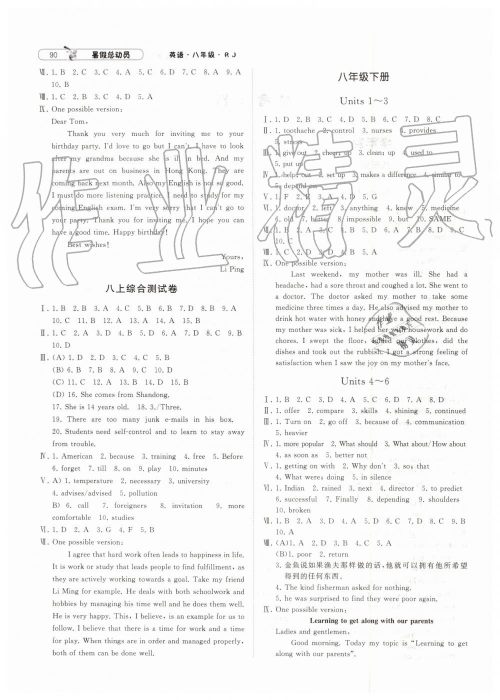 90 暑假总动员 英语·八年级·RJ
Ⅶ. 1. B 2. C 3. C 4. A 5. C 6. D 7. C 8. A 9. A
10. B
Ⅷ. 1. B 2. C 3. C 4. D 5. A
Ⅸ. One possible version:
Dear Tom,
Thank you very much for inviting me to your
birthday party. I'd love to go but I can't. I have to look
after my grandma because she is ill in bed. And my
parents are out on business in Hong Kong. They are
coming back next month. Also my English is not so good.
I must do more listening practice. I need to study for my
coming English exam. I'm very sorry that I can't go to
your party. Thank you for inviting me. I hope you can
have a good time. Happy birthday!
Best wishes!
Yours,
Li Ping
八上综合测试卷
Ⅰ. 1. B 2. D 3. A 4. C 5. B 6. B 7. B 8. A 9. A
10. C 11. B 12. A 13. A 14. A 15. B
Ⅱ. 1. C 2. A 3. D 4. B 5. D 6. A 7. D 8. C 9. B
10. D
Ⅲ. (A) 1. D 2. D 3. C 4. A 5. C
(B) 6. B 7. B 8. A 9. C 10. D
(C) 11. C 12. A 13. B 14. D 15. B
(D) 16. She comes from Shandong.
17. She is 14 years old. 18. 3./Three.
19. There are too many junk e-mails in his box.
20. Students need self-control and to learn to stay away
from trouble.
Ⅳ. 1. American 2. because 3. training 4. free 5. Before
6. forget 7. till 8. on 9. play 10. minutes
Ⅴ. A) 1. temperature 2. necessary 3. university
4. advises/advised 5. pollution
B) 6. call 7. foreigners 8. invitation 9. more
comfortable 10. studies
Ⅵ. 1. D 2. A 3. G 4. F 5. B
Ⅶ. One possible version:
I agree that hard work often leads to happiness in life.
It is work or study that leads people to find fulfillment, as
they are actively working towards a goal. Take my friend
Li Ming for example. He deals with both schoolwork and
hobbies by managing his time well and he does them well.
He is very happy. This, I believe, is an example for us to
follow. I believe that there is a time for work and a time
for play. When things are in order and managed properly,
both of them can be done well.
八年级下册
Units 1～3
Ⅰ. 1. C 2. B 3. A 4. D 5. B 6. C 7. D 8. C
Ⅱ. 1. toothache 2. control 3. nurses 4. provides
5. stress
Ⅲ. 1. give out 2. cheer; up 3. clean; up 4. used to
5. put up
Ⅳ. 1. help; out 2. set up 3. makes a difference 4. similar to
5. depend on
Ⅴ. 1. F 2. B 3. A 4. D 5. G
Ⅵ. 1. without 2. anything 3. know 5. medicine
6. old 7. better 8. impossible 9. but 10. SAME
10. C
Ⅸ. One possible version:
Last weekend, my mother was ill. She had a
headache, had a sore throat and coughed a lot. She went
to a doctor. The doctor asked my mother to take some
medicine three times a day. He also advised my mother to
drink hot water with honey and have a good rest. Because
my mother was sick, I helped her with housework and do
chores. I swept the floor, folded our clothes, did the
dishes and took out the rubbish. I got a strong feeling of
satisfaction when I saw the joy on my mother's face.
Units 4～6
Ⅰ. 1. B 2. C 3. C 4. D 5. C 6. D 7. A 8. D
Ⅱ. 1. offer 2. compare 3. skills 4. shining 5. continued
Ⅲ. 1. Turn on 2. go off 3. because of 4. communication
5. heavier
Ⅳ. 1. more popular 2. What should 3. What about/How about
4. as soon as 5. better not
Ⅴ. 1. getting on with 2. Why don't 3. so; that
4. What were; doing 5. in silence
Ⅵ. 1. Indian 2. rained 3. next 4. director 5. to predict
6. successful 7. Finally 8. depending 9. shoulders
10. broken
Ⅶ. 1. B 2. A 3. D 4. A 5. D 6. C 7. D 8. C 9. B
10. A
Ⅷ. (A) 1. A 2. D 3. C 4. D 5. D
(B) 1. poor 2. return
3. 金鱼说如果渔夫那样做的话,他就可以拥有他所希望
得到的任何东西。
4. The kind fisherman asked for nothing.
5. he was surprised to find they were poor again.
Ⅸ. One possible version:
Learning to get along with our parents
Ladies and gentlemen,
Good morning. Today my topic is "Learning to get
along with our parents".